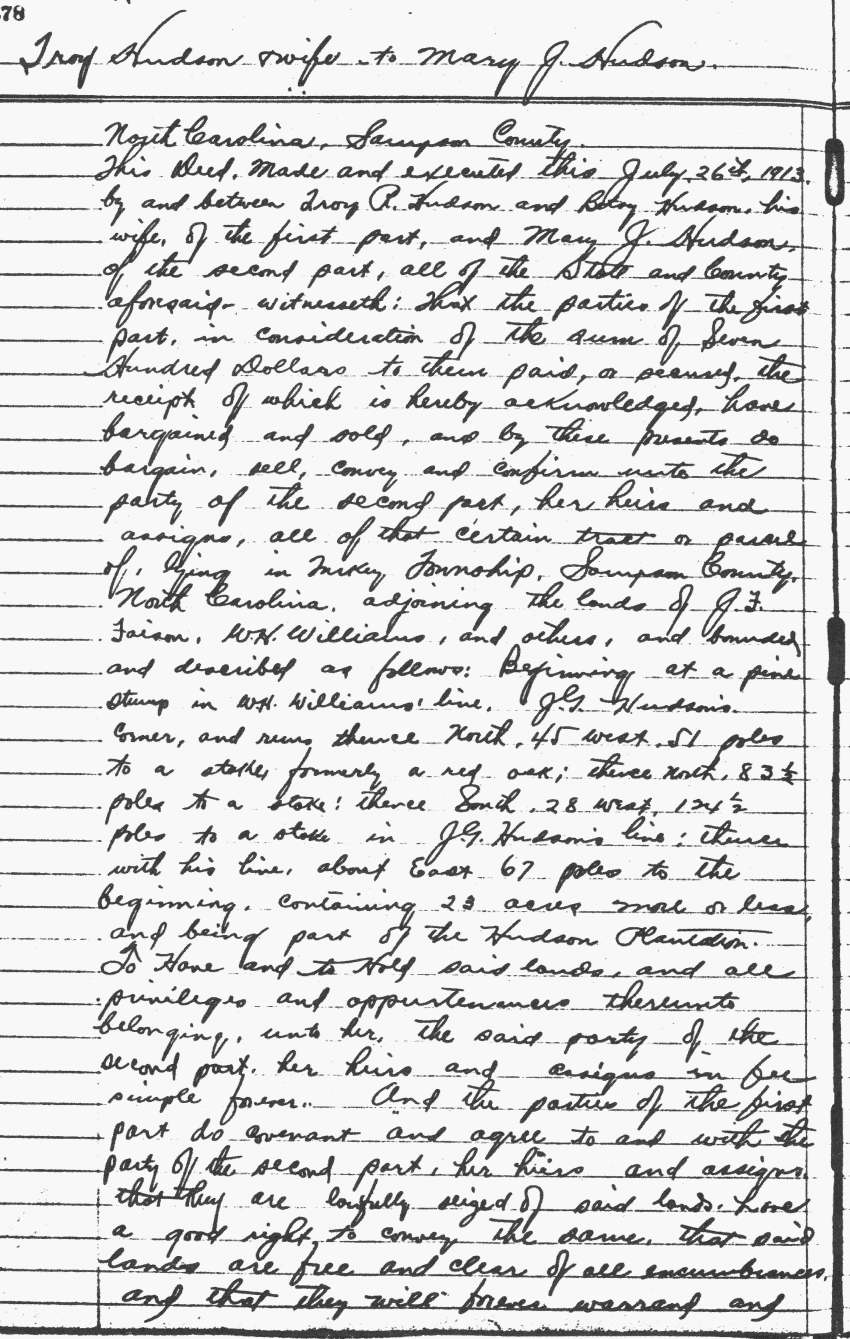 378
Troy Hudson & wife to Mary J. Hudson.
North Carolina, Sampson County.
This Deed, Made and executed this July, 26th, 1913.
by and between Troy R. Hudson and Betsy Hudson, his
wife, of the first part, and Mary J. Hudson,
of the second part, all of the State and County
aforesaid- witnesseth: That the parties of the first
part, in consideration of the sum of Seven
Hundred Dollars to them paid, or secured, the
receipt of which is hereby acknowledged, have
bargained and sold, and by these presents do
bargain, sell, convey and confirm unto the
party of the second part, her heirs and
assigns, all of that certain tract or parcel
of, lying in Turkey Township, Sampson County,
North Carolina, adjoining the lands of J.F.
Faison, W.H. Williams, and others, and bounded
and described as follows: Beginning at a pine
stump in W.H. Williams' line, J.G. Hudson's.
Corner, and runs thence North, 45 west, 51 poles
to a stake, formerly a red oak; thence North, 83 1/2
poles to a stake: thence South, 28 West, 124 1/2
poles to a stake in J.G. Hudson's line: thence
with his line, about East 67 poles to the
beginning, containing 23 acres more or less,
and being part of the Hudson Plantation.
To Have and to Hold said lands, and all
privileges and appurtenances thereunto
belonging, unto her, the said party of the
second part, her heirs and assigns in fee
simple forever. And the parties of the first
part do covenant and agree to and with the
party of the second part, her heirs and assigns,
that they are lawfully seized of said lands, have
a good right to convey the same, that said
lands are free and clear of all encumbrances,
and that they will forever warrand and